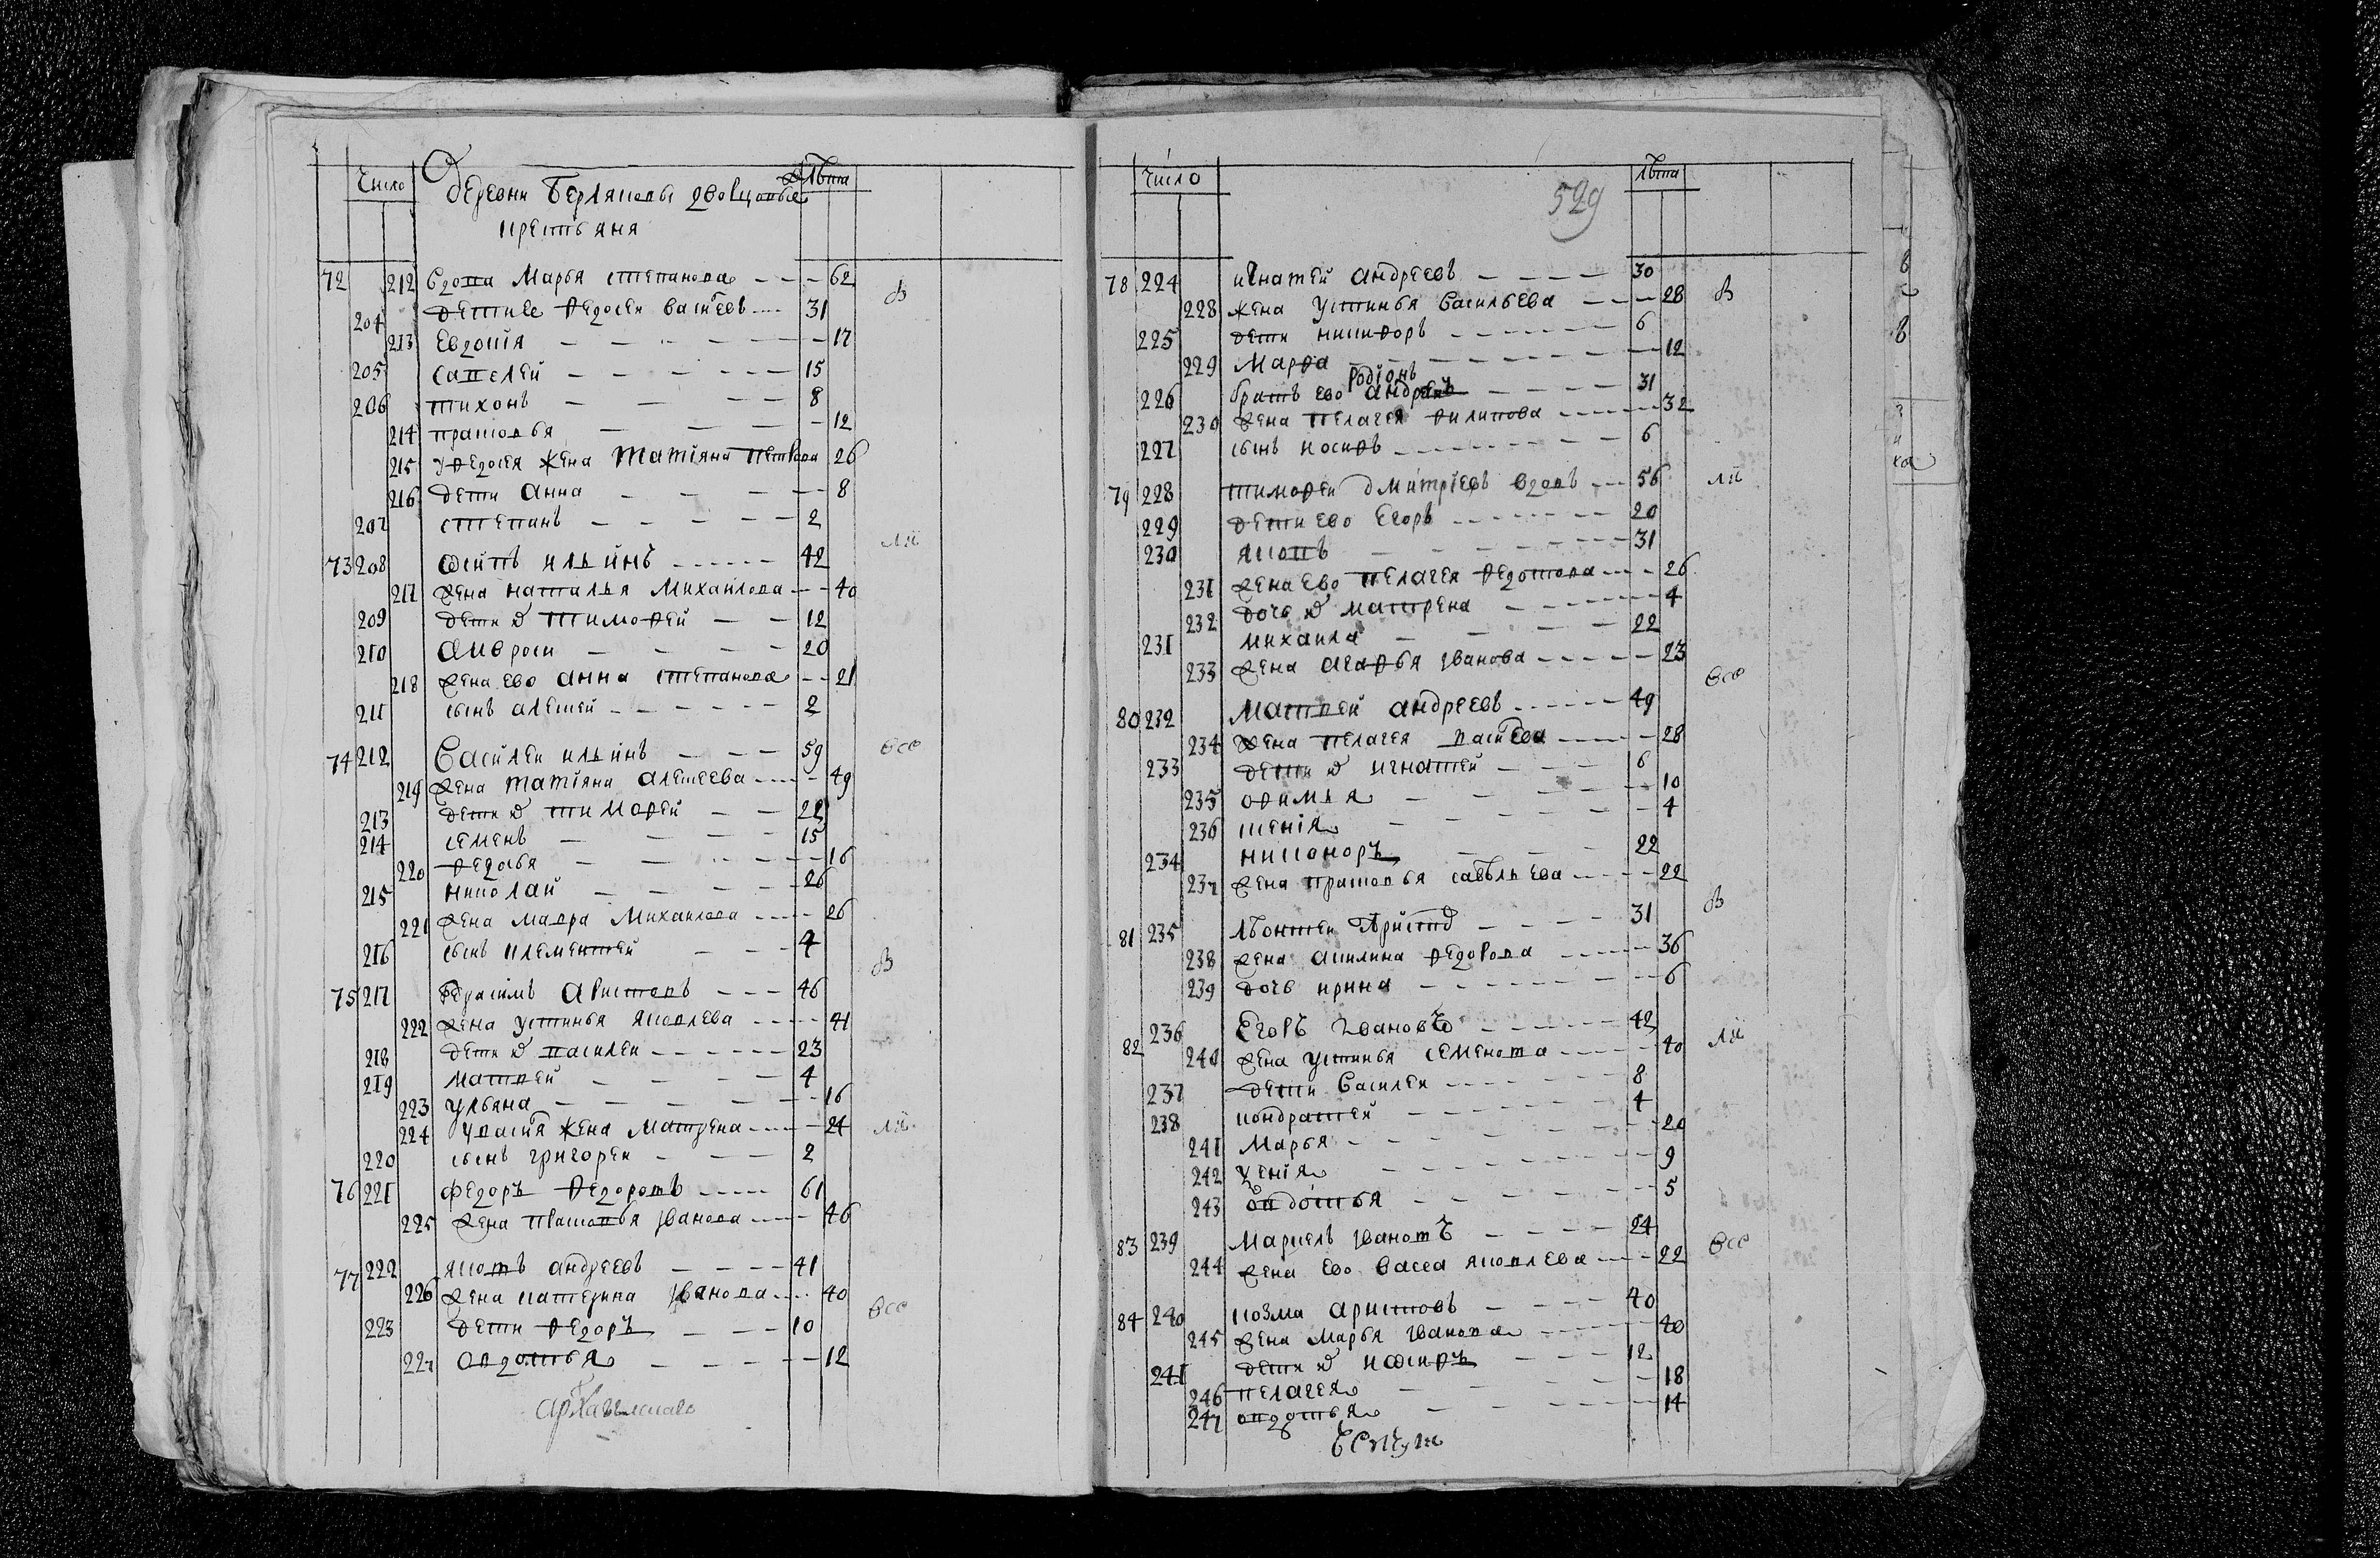 Число Лѣта
Деревни Берляковы дворцовые
крестьяня
72 212 Вдова Марья степанова 62
204 дети ее Федосеи васильевъ 31 в
213 Евдокiя 17
205 савелей 15
206 тихонъ 8
214 прасковья 12
215 у Федосея жена татiяна петрова 26
216 дети анна 8
207 степанъ 2
ли
73 208 осипъ ильинъ 42
217 жена наталья михаилова 40
209 дети тимофей 12
210 амвроси 20
218 жена ево анна степанова 21
211 сынъ алексей 2
74 212 Василеи ильинъ 59 все
219 жена татiяна алексеева 49
213 дети тимофей 22
214 семенъ 15
220 федосья 16
215 николаи 26
221 жена мавра михаилова 26
216 сынъ клементей 4
в
75 217 Герасимъ аристовъ 46
222 жена устинья яковлева 41
218 дети василеи 23
219 матвей 4
223 ульяна 16
224 у василья жена матрена 24 ли
220 сынъ григореи 2
76 221 федоръ федоровъ 61
225 жена прасковья иванова 46
77 222 яковъ андреевъ 41
226 жена катерина иванова 40
все
223 дети федоръ 10
227 овдотья 12
архангельскаго
Число Лѣта
529
78 224 игнатей андреевъ 30
228 жена устинья васильева 28 в
225 дети никифоръ 6
229 марфа 12
родiонъ
226 братъ ево андреевъ 31
230 жена пелагея филипова 32
227 сынъ иосифъ 6
79 228 тимофеи дмитрiевъ вдовъ 56 ли
229 дети ево егоръ 20
230 яковъ 31
231 жена ево пелагея федотова 26
232 дочь матрена 4
231 михаила 22
233 жена агафья иванова 23
все
80 232 матвей андреевъ 49
234 жена пелагея васильева 28
233 дети игнатей 6
235 офимья 10
236 ксенiя 4
234 никоноръ 22
237 жена прасковья савельева 22
в
81 235 лѣонтеи аристов 31
238 жена акилина федорова 36
239 дочь ирина 6
82 236 егоръ ивановъ 42
240 жена устинья семенова 40 ли
237 дети василеи 8
238 кондратей 4
241 марья 20
242 ксенiя 9
243 овдотья 5
83 239 маркелъ ивановъ 24
244 жена ево васса яковлева 22 все
84 240 козма аристовъ 40
245 жена марья иванова 40
241 дети иосифъ 12
246 пелагея 18
247 овдотья 14